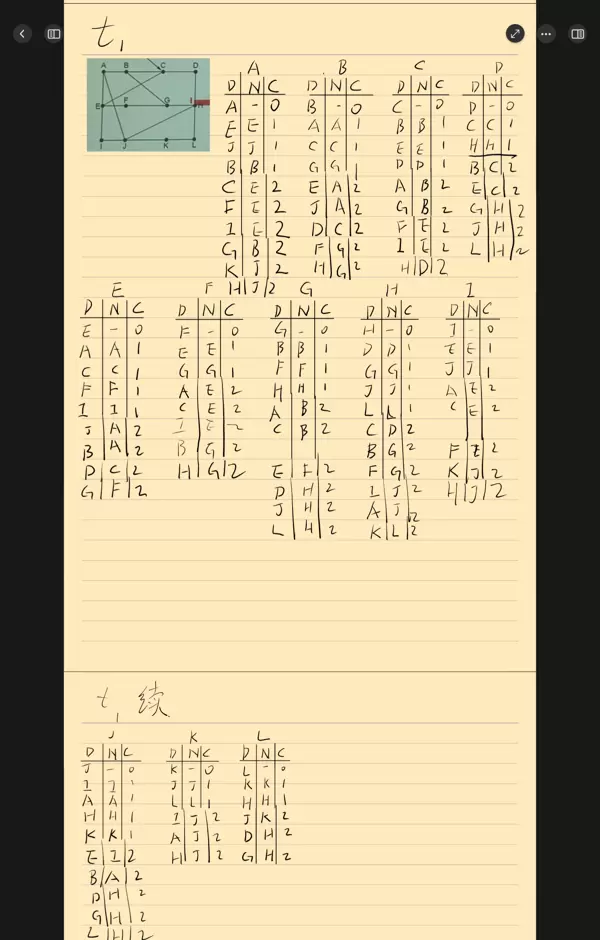 t₁
A B C D
E F G I H
I J K L
A
D N C
A - 0
E E 1
J J 1
B B 1
C E 2
F E 2
I E 2
G B 2
K J 2
H J 2
B
D N C
B - 0
A A 1
C C 1
G G 1
E A 2
J A 2
D C 2
F G 2
H G 2
C
D N C
C - 0
B B 1
E E 1
D D 1
A B 2
G B 2
F E 2
I E 2
H D 2
D
D N C
D - 0
C C 1
H H 1
B C 2
E C 2
G H 2
J H 2
L H 2
E
D N C
E - 0
A A 1
C C 1
F F 1
I I 1
J A 2
B A 2
D C 2
G F 2
F
D N C
F - 0
E E 1
G G 1
A E 2
C E 2
I E 2
B G 2
H G 2
G
D N C
G - 0
B B 1
F F 1
H H 1
A B 2
C B 2
E F 2
D H 2
J H 2
L H 2
H
D N C
H - 0
D D 1
G G 1
J J 1
L L 1
C D 2
B G 2
F G 2
I J 2
A J 2
K L 2
I
D N C
I - 0
E E 1
J J 1
A E 2
C E 2
F E 2
K J 2
H J 2
t₁ 续
J
D N C
J - 0
I I 1
A A 1
H H 1
K K 1
E I 2
B A 2
D H 2
G H 2
L H 2
K
D N C
K - 0
J J 1
L L 1
I J 2
A J 2
H J 2
L
D N C
L - 0
K K 1
H H 1
J K 2
D H 2
G H 2